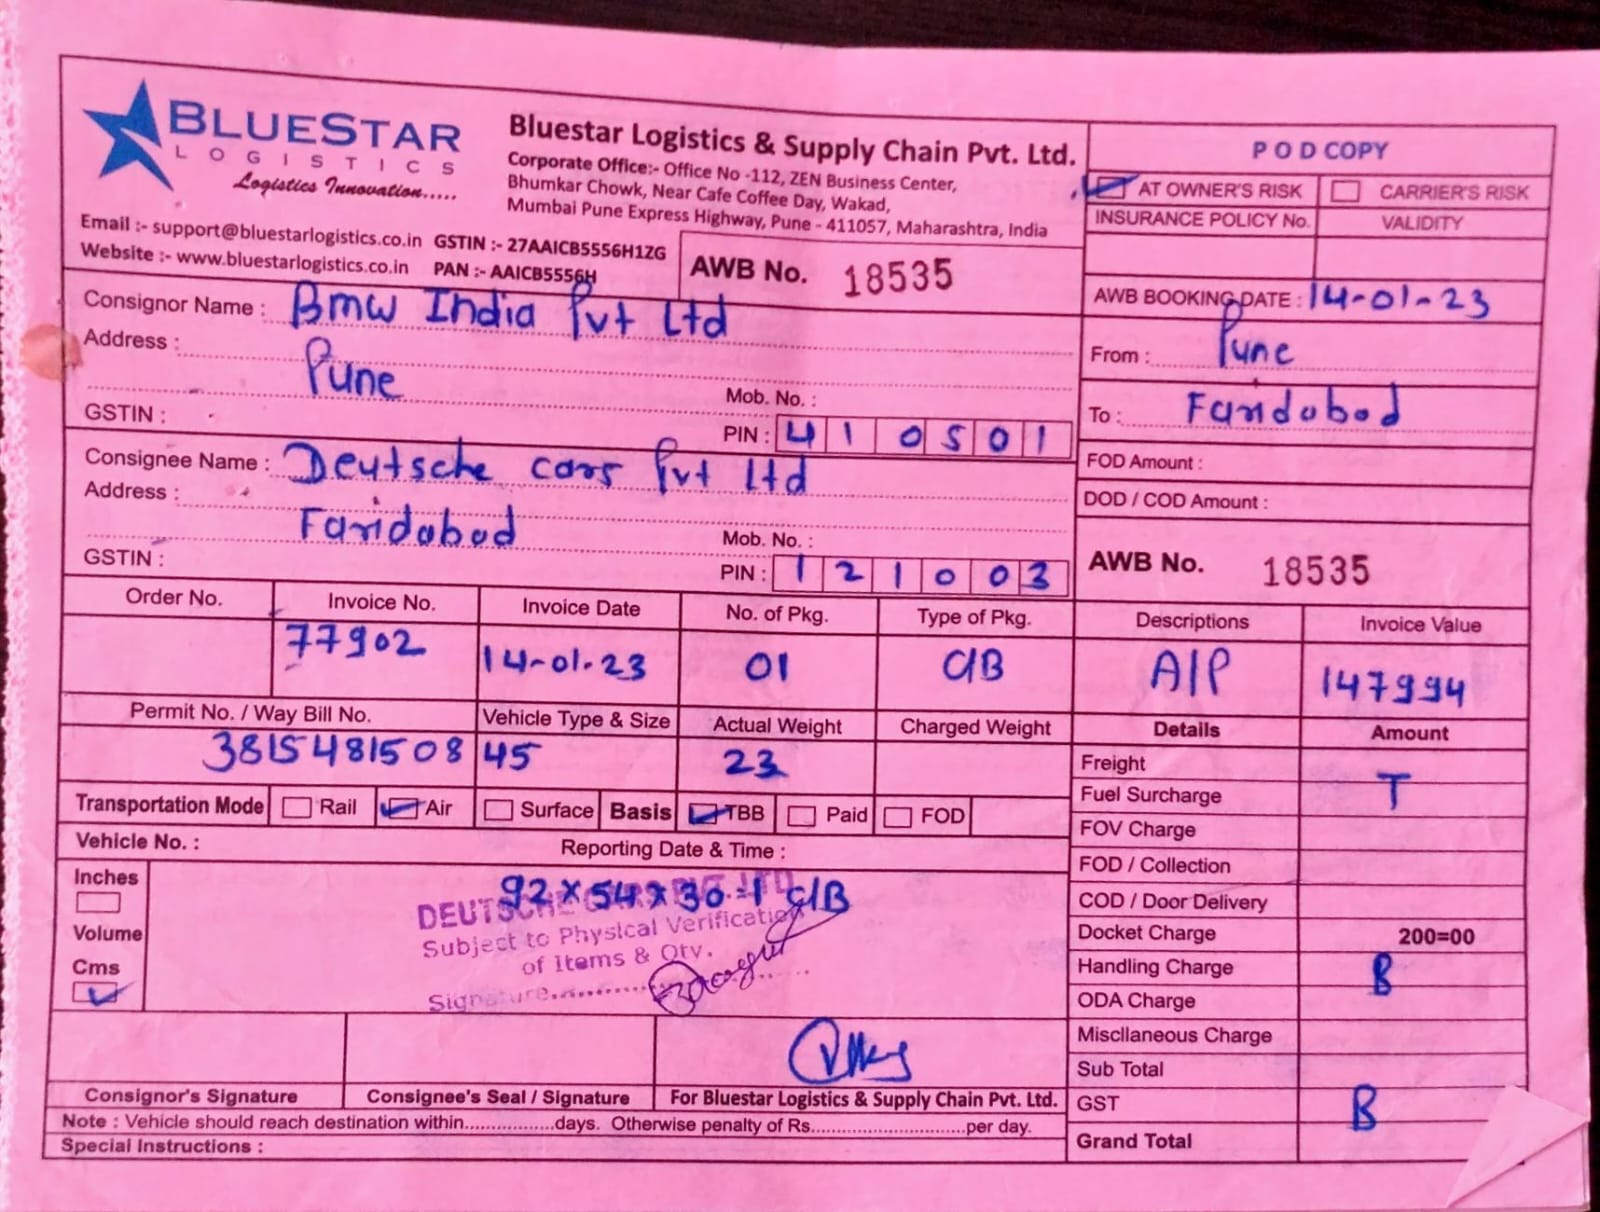 BLUESTAR
LOGISTICS
Logistics Innovation.....
Email :- support@bluestarlogistics.co.in GSTIN :- 27AAICB5556H1ZG
Website :- www.bluestarlogistics.co.in PAN :- AAICB5556H
Bluestar Logistics & Supply Chain Pvt. Ltd.
Corporate Office:- Office No -112, ZEN Business Center,
Bhumkar Chowk, Near Cafe Coffee Day, Wakad,
Mumbai Pune Express Highway, Pune - 411057, Maharashtra, India
AWB No. 18535
POD COPY
AT OWNER'S RISK CARRIER'S RISK
INSURANCE POLICY No. VALIDITY
AWB BOOKING DATE : 14-01-23
From : Pune
To : Faridabad
FOD Amount :
DOD / COD Amount :
AWB No. 18535
Consignor Name : Bmw India Pvt Ltd
Address :
Pune
Mob. No. :
GSTIN :
PIN : 410501
Consignee Name : Deutsche cars Pvt Ltd
Address :
Faridabad
Mob. No. :
GSTIN :
PIN : 121003
Order No. Invoice No. Invoice Date No. of Pkg. Type of Pkg. Descriptions Invoice Value
77902 14-01-23 01 C/B A/P 147994
Permit No. / Way Bill No. Vehicle Type & Size Actual Weight Charged Weight Details Amount
381548150845 23
Transportation Mode Rail Air Surface Basis TBB Paid FOD
Vehicle No. : Reporting Date & Time :
Inches
Volume
Cms
92 x 54 x 30 = 1 C/B
DEUTSCHE CARS PVT LTD
Subject to Physical Verification
of Items & Qty.
Signature..................
Freight
Fuel Surcharge T
FOV Charge
FOD / Collection
COD / Door Delivery
Docket Charge 200=00
Handling Charge B
ODA Charge
Miscllaneous Charge
Sub Total
GST B
Grand Total
Consignor's Signature Consignee's Seal / Signature For Bluestar Logistics & Supply Chain Pvt. Ltd.
Note : Vehicle should reach destination within.................days. Otherwise penalty of Rs.............................per day.
Special Instructions :